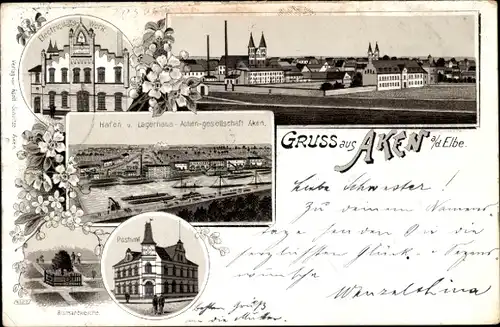 Electricitäts Werk
Hafen u. Lagerhaus-Actien-gesellschaft Aken.
GRUSS aus AKEN a/d. Elbe.
Postamt
Bismarckeiche
Liebe Schwester!
Zu Deinem Namens
tage senden Dir die
herzlichsten Glück- u. Segens
wünsche